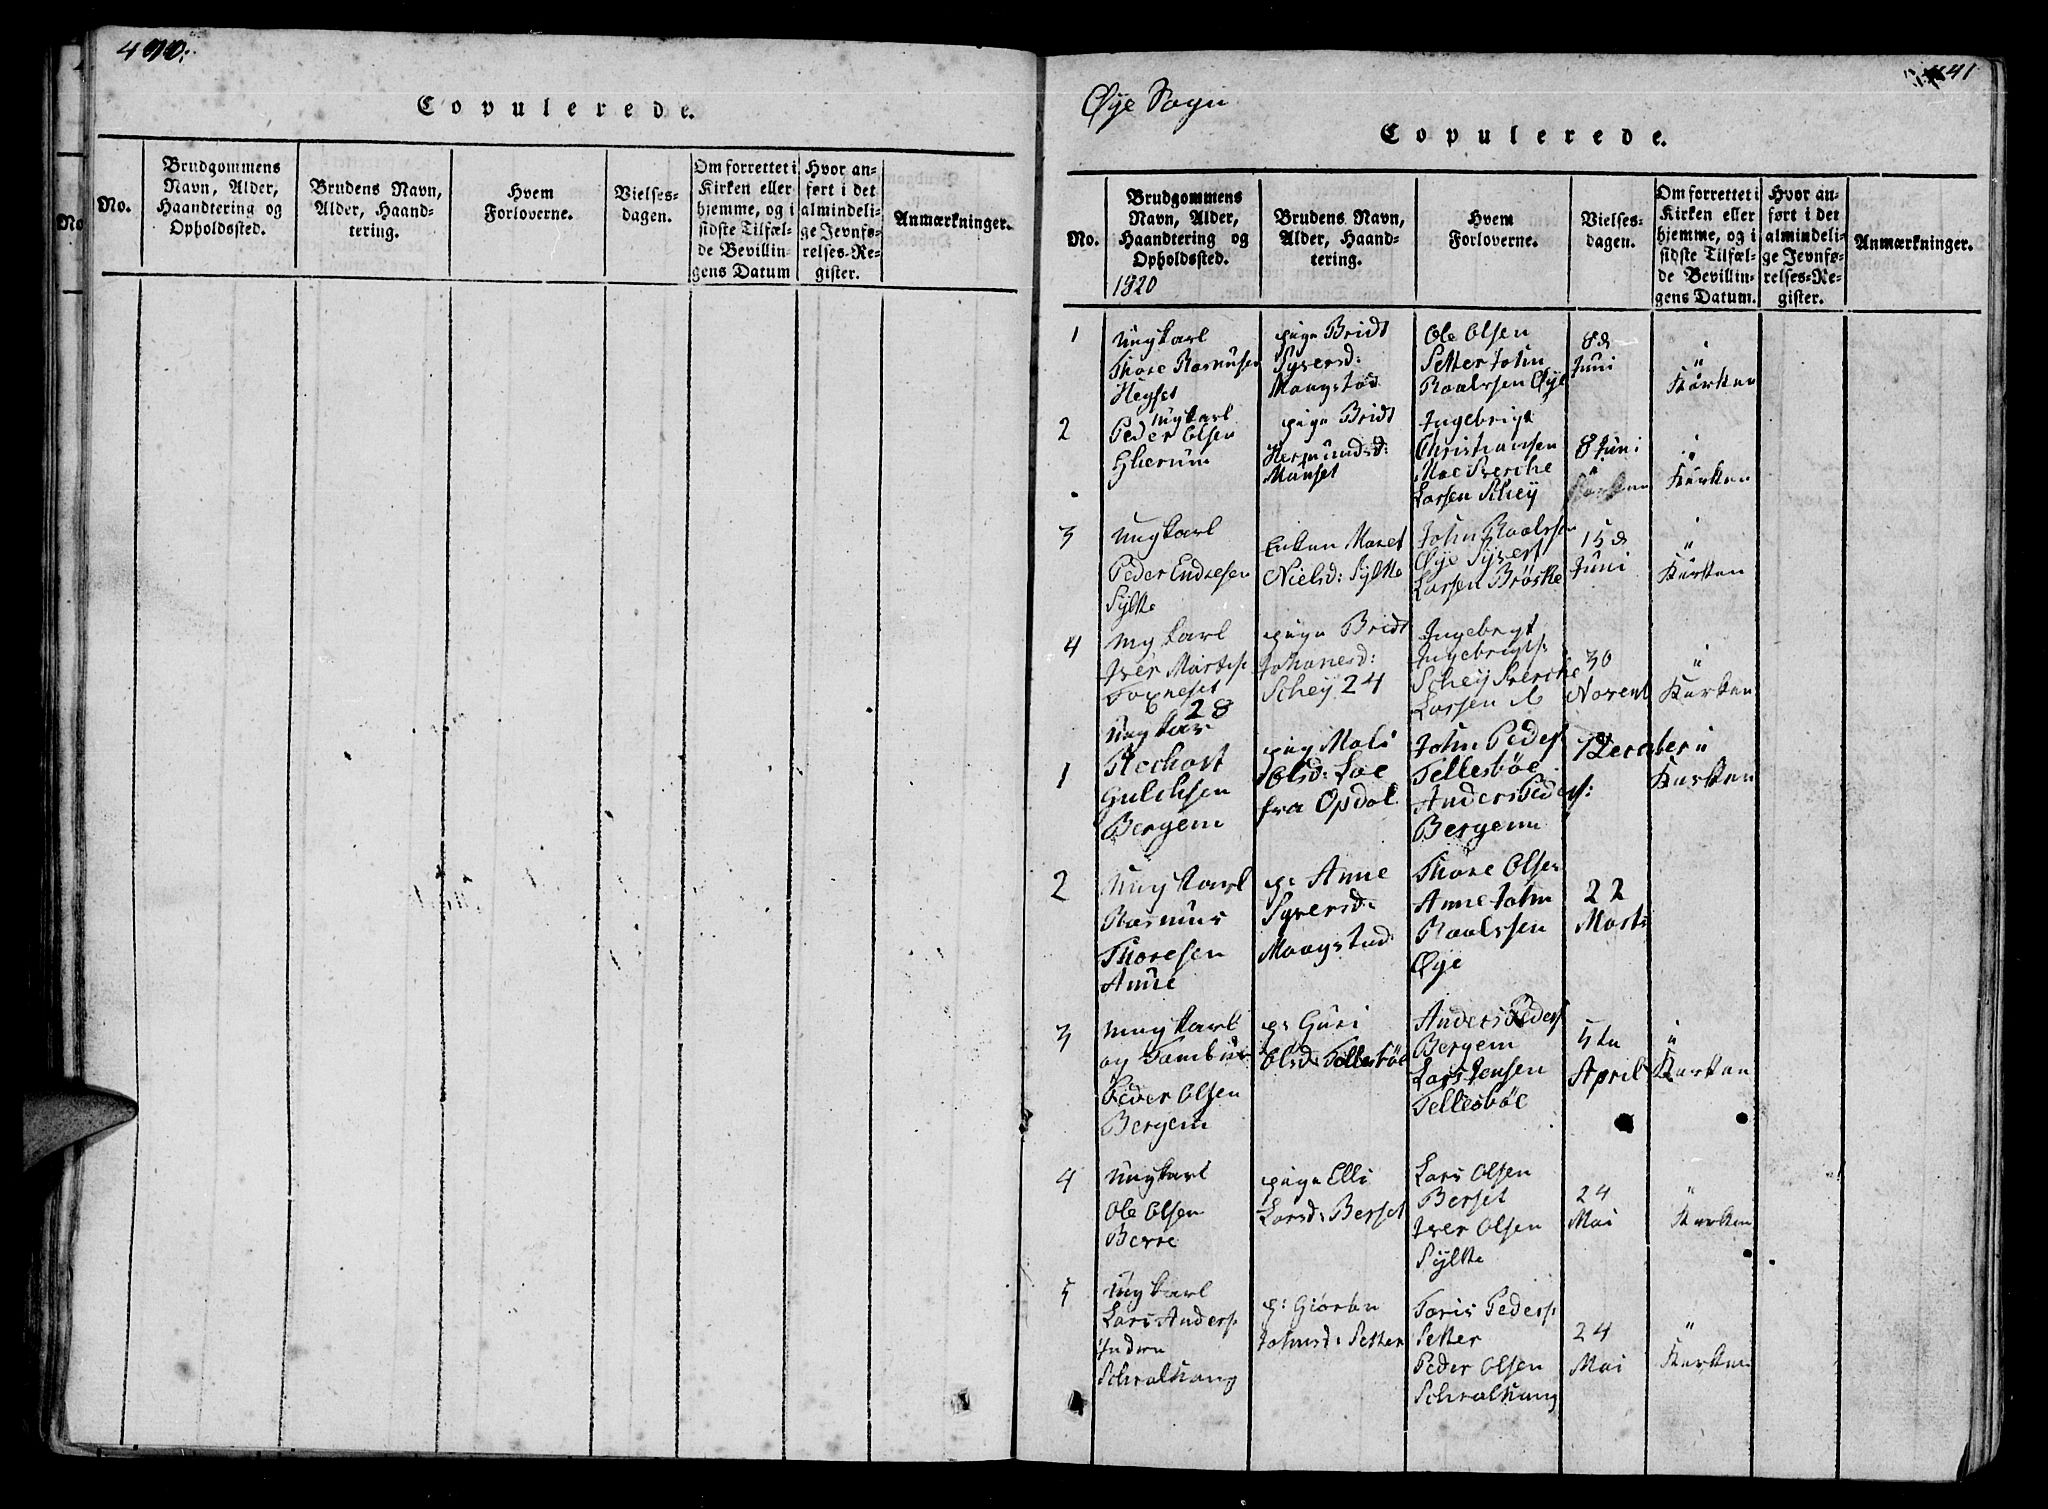 Copulerede.
No.
Brudgommens
Navn, Alder,
Haandtering og
Opholdssted.
Brudens Navn,
Alder, Haand-
tering.
Hvem
Forloverne.
Vielses-
dagen.
Om forrettet i
Kirken eller
hjemme, og i
sidste Tilfæl-
de Bevillin-
gens Datum
Hvor an-
ført i det
almindeli-
ge Jevnfø-
relses-Re-
gister.
Anmærkninger.
441
Øye Sogn
Copulerede.
No.
Brudgommens
Navn, Alder,
Haandtering og
Opholdssted.
1820
Brudens Navn,
Alder, Haand-
tering.
Hvem
Forloverne.
Vielses-
dagen.
Om forrettet i
Kirken eller
hjemme, og i
sidste Tilfæl-
de Bevillin-
gens Datum.
Hvor an-
ført i det
almindeli-
ge Jevnfø-
relses-Re-
gister.
Anmærkninger.
1
Ungkarl
Thore Rasmusen
Hegset
pige Bridt
Syversd:
Maagstad
Ole Olsen
Setter John
Roalssen Øye
8d
Juni
i
Kirken
2
Ungkarl
Peder Olsen
Glærum
pige Bridt
Hermundsd:
Mauset
Ingebrigt
Christiansen
Moe Sverche
Larsen Schey
8 Juni
i
Kirken
3
Ungkarl
Peder Endresen
Sylte
Enken Maret
Nielsd: Sylte
John Roalssen
Øye Syvert
Larsen Brøske
15d
Juni
i
Kirken
4
Ungkarl
Iver
28
pige Bridt
Johanesd:
Schey 24
Ingebrigt
Ingebrigts:
Schey Sverche
Larsen
30
Novemb
i
Kirken
1
Ungkar
Gulchsen
Bergem
pig Mali
Olsd: Loe
fra Opdal
John Peders
Tellesbøe
Anders Peders:
Bergem
December
i
Kirken
2
Ungkarl
Rasmus
Thoresen
Aune
p: Anne
Syversd:
Maagstad
Thore Olsen
Aune John
Roalssen
Øye
22
Marts
3
Ungkarl
og Tambur
Peder Olsen
Bergem
p: Guri
Olsd: Tellesbøe
Anders Peders
Bergem
Lars Jensen
Tellesbøe
5te
April
i
Kirken
4
Ungkarl
Ole Olsen
Berse
pige Elli
Larsd: Berset
Lars Olsen
Berset
Iver Olsen
Sylte
24
Mai
i
Kirken
5
Ungkarl
Lars Anders:
Indre
Schralthaug
p:
Johnsd: Setter
Toris Peders:
Setter
Peder Olsen
Schralthaug
24
Mai
i
Kirken